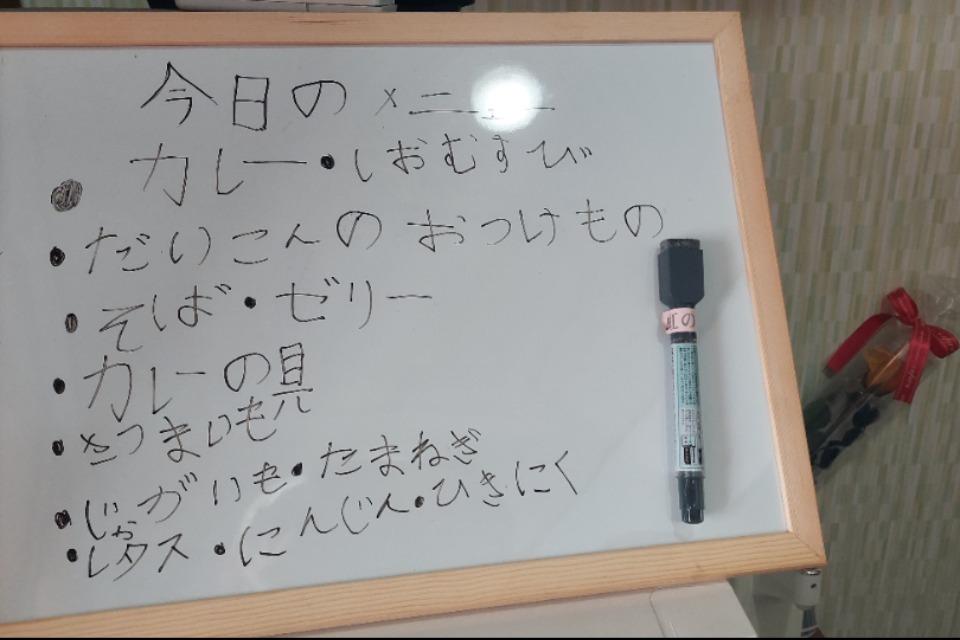 今日の メニュー
カレー・しおむすび
・だいこんの おつけもの
・そば・ゼリー
・カレーの具
・さつまいも
・じゃがいも・たまねぎ
・レタス・にんじん・ひきにく